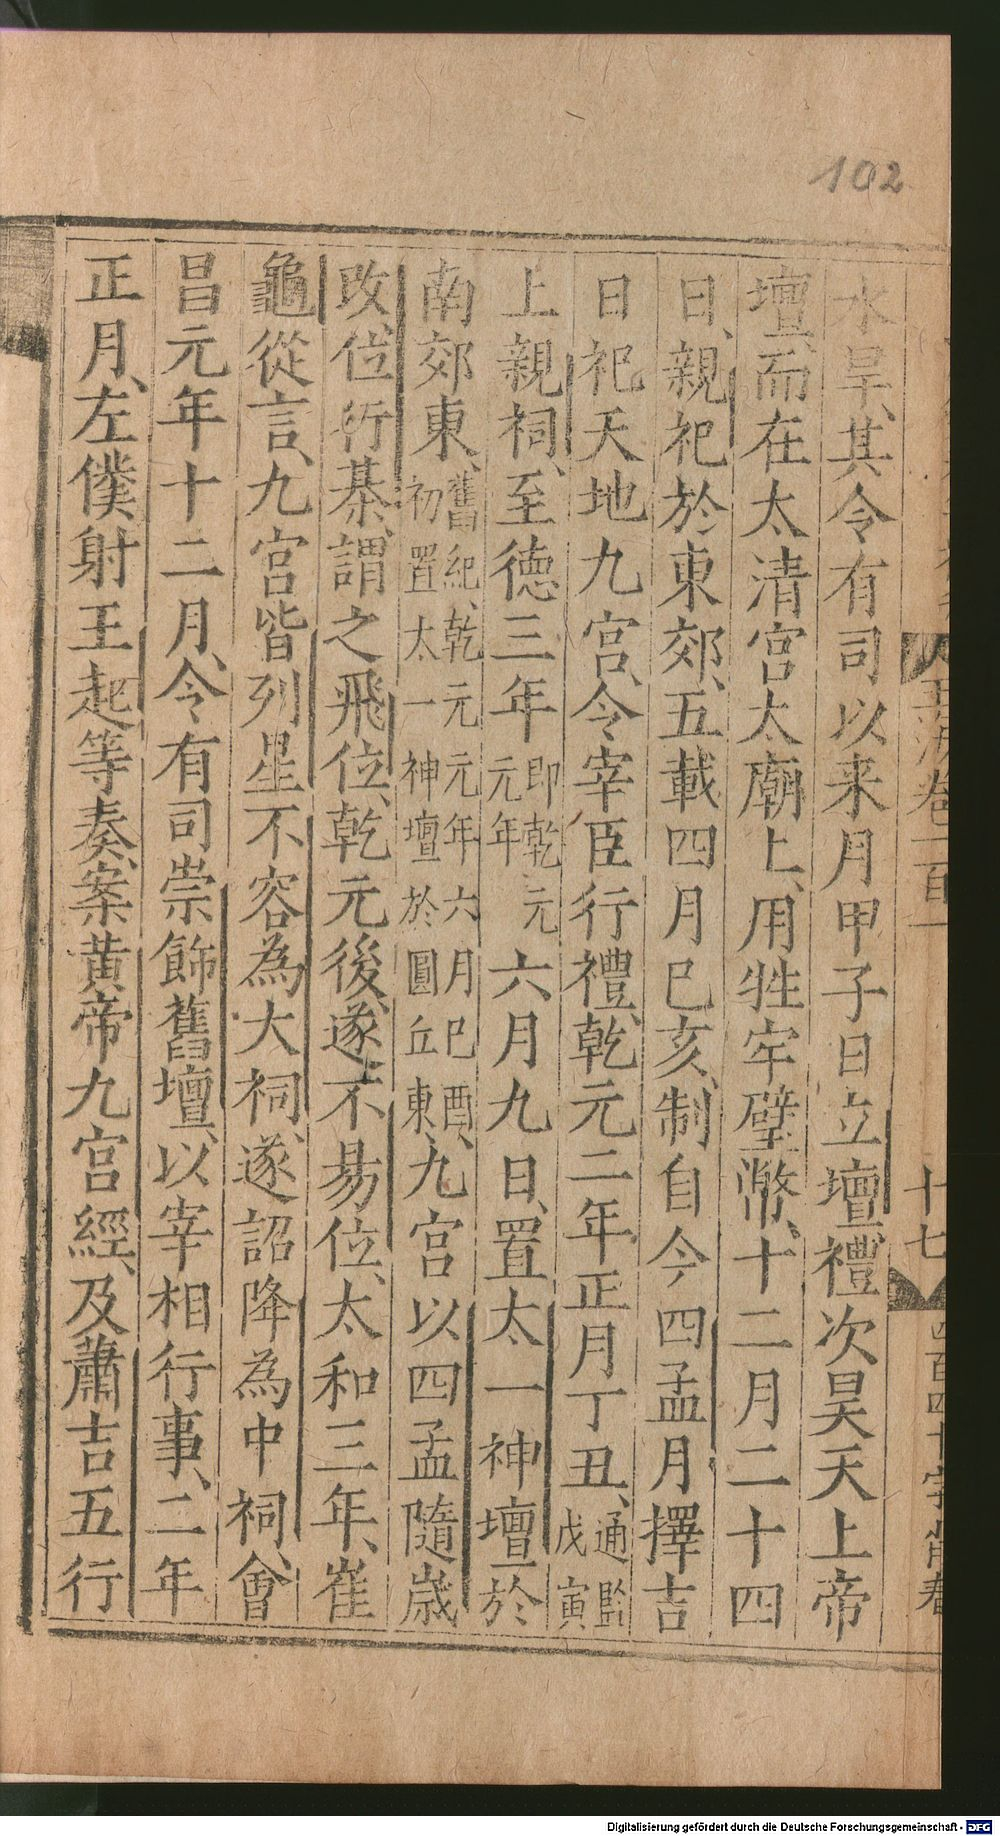 102
玉海卷一百一
十七
四百四十字
水旱其令有司以来月甲子日立壇禮次昊天上帝
壇而在太清宫太廟上用牲牢璧幣十二月二十四
日親祀於東郊五載四月已亥制自今四孟月擇吉
日祀天地九宫令宰臣行禮乾元二年正月丁丑通監戊寅
上親祠至德三年即乾元元年六月九日置太一神壇於
南郊東舊紀乾元元年六月巳酉初置太一神壇於圓丘東九宫以四孟隨歳
改位行棊謂之飛位乾元後遂不易位太和三年崔
龜從言九宫皆列星不容為大祠遂詔降為中祠會
昌元年十二月令有司崇飾舊壇以宰相行事二年
正月左僕射王起等奏案黄帝九宫經及蕭吉五行
Digitalisierung gefördert durch die Deutsche Forschungsgemeinschaft - DFG